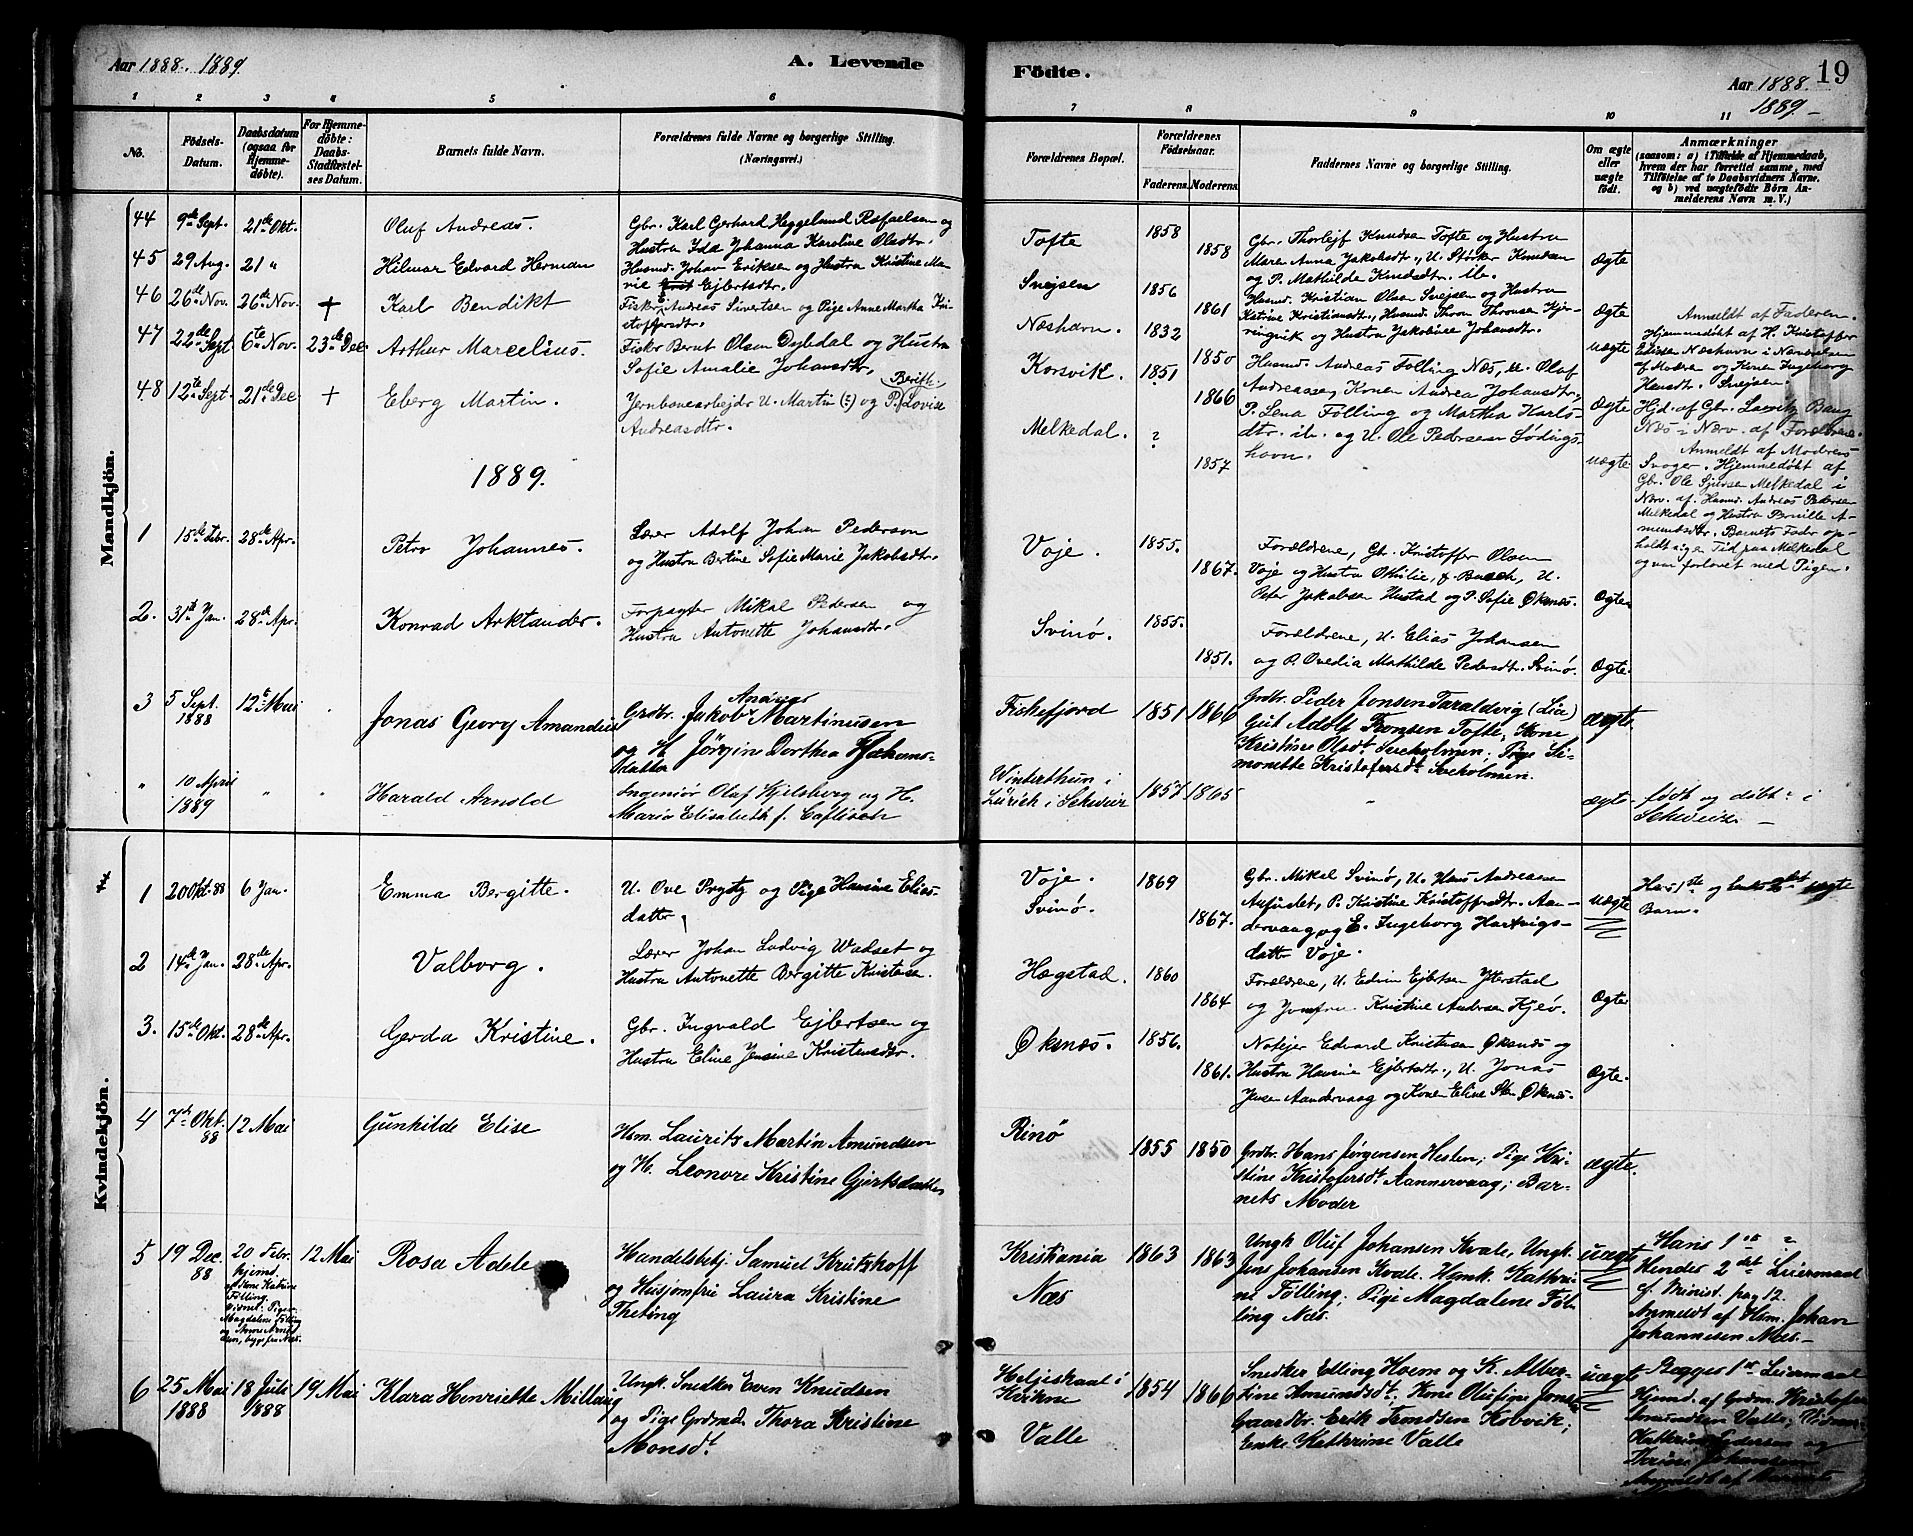 Aar 1888. 1889
A. Levende
Födte.
19
Aar 1888.
1889.
1 2 3 4 5 6 7 8 9 10 11
No.
Födsels-
Datum.
Daabsdatum
(ogsaa for
Hjemme-
døbte).
For Hjemme-
døbte:
Daabs-
Stadfæstel-
ses Datum.
Barnets fulde Navn.
Forældrenes fulde Navne og borgerlige Stilling.
(Næringsvei.)
Forældrenes Bopæl.
Forældrenes
Fødselsaar.
Faderens.
Moderens.
Faddernes Navne og borgerlige Stilling.
Om ægte
eller
uægte
født.
Anmærkninger
(saasom: a) i Tilfælde af Hjemmedaab,
hvem der har forrettet samme, med
Tilføielse af to Daabsvidners Navne.
og b) ved uægtefødte Børn An-
melderens Navn m. V.)
Mandkjön.
44 9de Sept. 21de Okt. Oluf Andreas.
Gbr. Karl Gerhard Heggelund Rafaelsen og
Hustru Ida Johanna Karoline Olsdtr.
Tofte 1858 1858
Gbr. Thorleif Knudsen Tofte og Hustru
Maren Anna Jakobsdtr., U. Stiker Knudsen
og P. Mathilde Knudsdtr. ib.
Ægte
45 29 Aug. 21 " Hilmar Edvard Herman
Husmd. Johan Eriksen og Hustru Kristine Ma-
rie Ejlertsdtr.
Svejsen 1856 1861
Husmd. Kristian Olsen Svejsen og Hustru
Katrine Kristiansdtr., Husmd. Thron Thronsen Kjer-
ringvik og Hustru Jakobine Johansdtr.
Ægte
46 26de Nov. 26de Nov. + Karl Bendikt
Fisker Andreas Sivertsen og Pige Anne Martha Kri-
stoffersdtr.
Næshavn. 1832 1850
Uægte
Anmeldt af Faderen.
Hjemmedøbt af H. Kristoffer
47 22de Sept 6te Nov. 23de Dec. Arthur Marcelius.
Fiskr Bernt Olsen Dybdal og Hustru
Sofie Amalie Johansdtr.
Korsvik. 1851 1866
Husmd. Andreas Følling Næs, U. Oluf
Andreassen, Konen Andrea Johansdtr.,
P. Lena Følling og Martha Karls-
dtr. ib. og U. Ole Pedersen Lødings-
havn.
Ægte
Hjd. af Gbr. Lauritz Bang
Næs i Nærv. af Forældrene.
48 12te Sept. 21de Dec + Eberg Martin.
Jernbanearbejdr U. Martin (?) og P. Berith Lovise
Andreasdtr.
Melkedal. ? 1857
Uægte
Anmeldt af Modrens
Svoger. Hjemmedøbt af
Gbr. Ole Sjursen Melkedal i
Nærv. af Husmd. Andreas Pedersen
Melkedal og Hustru Pernille A-
mundsdtr. Barnets Fader op-
holdt sig en Tid paa Melkedal
og var forlovet med Pigen.
1889.
1 15de Febr. 28de Apr. Petro Johannes.
Lærer Adolf Johan Pedersen
og Hustru Bertine Sofie Marie Jakobsdtr.
Voje. 1855. 1867.
Forældrene, Gb. Kristoffer Olsen
Voje og Hustru Othilie, f. Busch, U.
Peter Jakobsen Hustad og P. Sofie Øksnes.
Ægte
2. 31te Jan. 28de Apr. Konrad Arktander.
Forpagter Mikal Pedersen og
Hustru Antonette Johansdtr.
Svinø. 1855. 1851.
Forældrene, U. Elias Johansen
og P. Ovedia Mathilde Pedersdtr. Svinø.
Ægte.
3 5 Sept. 1888 12te Mai Jonas Georg Amandus
Grdbr. Jakob Andreas Martinusen
og H. Jørgine Dorthea Johans-
datter
Fiskefjord 1851 1866
Grdbr. Peder Jonsen Taraldvig (Lia)
Gut Adolf Tronsen Tofte, Kone
Kristine Olsdt. Svenholmen. Pige Si-
monette Kristofersdt. Svenholmen.
ægte.
" 10 April 1889 " " Harald Arnold
Ingeniør Oluf Kjelsberg og H.
Marie Elisabeth f. Caflisch
Winterthun i
Zürich i Schweiz 1857 1865 "
ægte. født og døbt i
Schweiz. –
Kvindekjön.
1 20 Okt. 88 6 Jan. Emma Bergitte.
U. Ove Prytz og Pige Hansine Elias-
datter
Voje.
Svinø. 1869 1867.
Gbr. Mikal Svinø, U. Hans Andreasen
Aufindet, P. Kristine Kristoffersdtr. Aan-
dervaag og E. Ingeborg Hartvigs-
datter Voje.
Uægte
Hans 1ste og hendes 2det uægte
Barn.
2 14de Jan. 28de Apr. Valborg.
Lærer Johan Ludvig Wadset og
Hustru Antonette Bergitte Kristensen.
Hægstad. 1860 1864
Forældrene, U. Edvin Ejlertsen Ytterstad
og Jomfru Kristine Andersen Kjeø.
Ægte
3. 15de Okt. 28de Apr. Gerda Kristine.
Gbr. Ingvald Ejlertsen og
Hustru Eline Jensine Kristensdtr.
Øksnes. 1856. 1861.
Notejer Edvard Kristensen Øksnes og
Hustru Hansine Ejlertsdtr., U. Jonas
Jensen Aandervaag og Konen Elise Sten Øksnes.
Ægte.
4 7de Okt. 88 12 Mai Gunhilde Elise
Hsm. Laurits Martin Amundsen
og H. Leonore Kristine Gjertsdatter
Rinø 1855 1850
Grdbr. Hans Jørgensen Heslen; Pige Kri-
stine Kristofersdt. Aannervaag; Bar-
nets Moder
ægte.
5 19 Dec. 88 20 Febr.
hjemd.
af Kone Katrine
Følling
Vidnet: Pige
Magdalene Følling
og Anne Arnts-
12 Mai Rosa Adele
Handelsbetj. Samuel Krutzkoff
og Husjomfru Laura Kristine
Theting
Kristiania
Næs 1863 1863
Ungk. Oluf Johansen Kvale, Ungk.
Jens Johansen Kvale. Hsmk. Kathri-
ne Følling; Pige Magdalene Føl-
ling Næs.
uægte
Hans 1st ?
Hendes 2det Leiermaal
cf. Minist. pag 12.
Anmeldt af Hsm. Johan
Johannesen Næs. –
6 25 Mai 1888 18 Juli 1888 19 Mai Klara Henriette Millang
Ungk. Snedker Even Knudsen
og Pige Grdmd. Thora Kristine
Monsdt.
Valle 1854 1866
Snedker Elling Hoem og K. Alber-
tine Amundsdt. Kone Olufine Jonsd.
Gaardbr. Erik Tomdsen Kobvik;
Enke Kathrine Valle
uægte
Begges 1st Leiermaal
Hjemd. af Grdm. Kristofer
Amundsen Valle; Vidner
Kathrine Pedersen og
Johansen
Anmeldt af